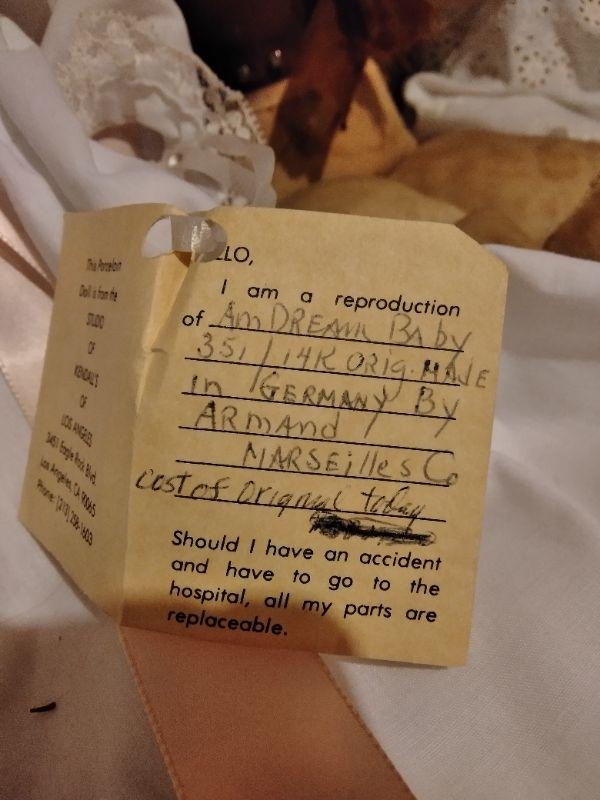 This Porcelain
Doll is from the
STUDIO
OF
KENDALL'S
OF
LOS ANGELES
Eagle Rock Blvd.
Los Angeles, CA 90065
Phone: (213) 256-1603
LLO,
I am a reproduction
of Am DREAM BAby
351/14K ORIG. MADE
in GERMANY By
ARMAnd
MARSEilles Co
cost of Orignal today
Should I have an accident
and have to go to the
hospital, all my parts are
replaceable.